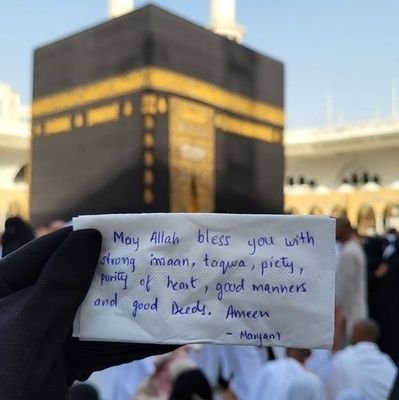 May Allah bless you with
strong imaan, taqwa, piety,
purity of heart, good manners
and good Deeds. Ameen
- Maryam